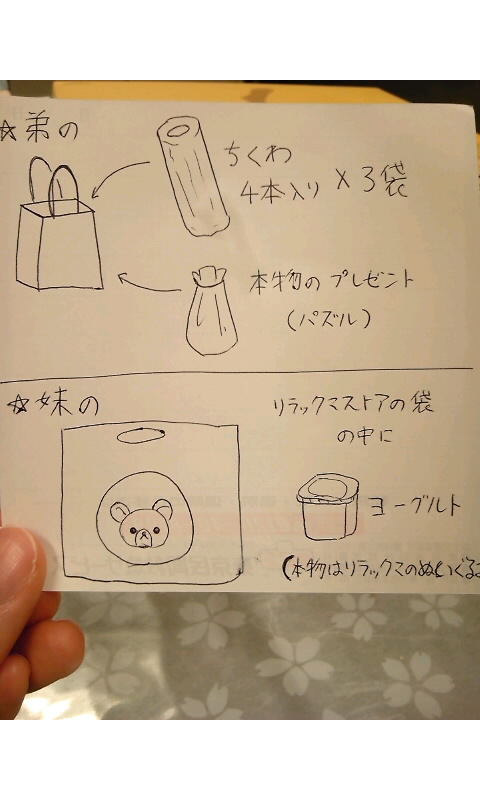 ☆弟の
ちくわ
4本入り × 3袋
本物の プレゼント
(パズル)
☆妹の
リラックマストアの袋
の中に
ヨーグルト
(本物はリラックマのぬいぐるみ